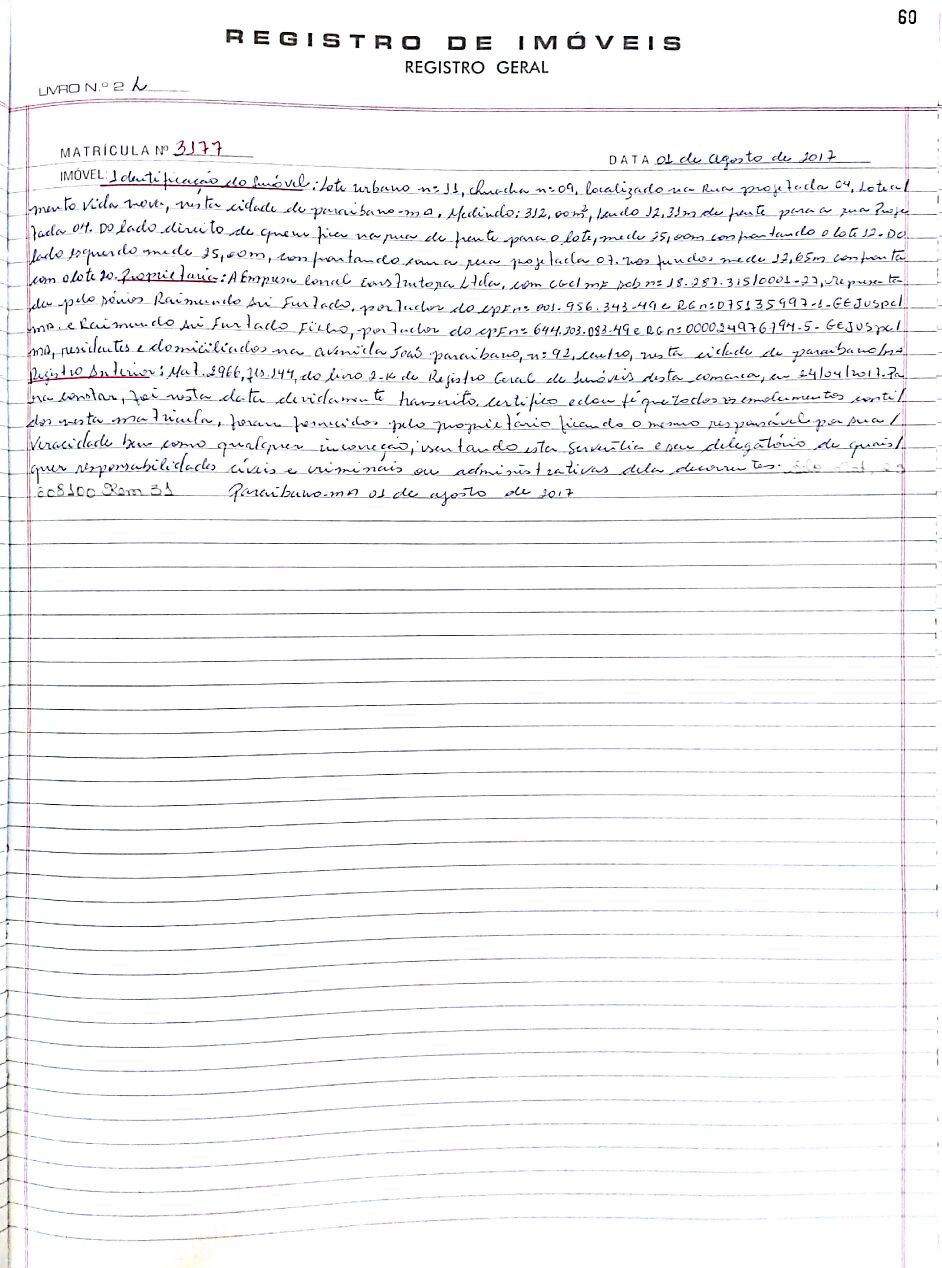 60
REGISTRO DE IMÓVEIS
REGISTRO GERAL
LIVRO N.º 2 L
MATRÍCULA Nº 3177
DATA 01 de agosto de 2017
IMÓVEL: Identificação do Imóvel: Lote urbano nº 11, Quadra nº 09, localizado na Rua projetada 04, Lotea/
mento Vida nova, nesta cidade de paraibano-ma. Medindo: 312,00m², sendo 12,31m de frente para a rua Proje
tada 04. Do lado direito de quem fica na rua de frente para o lote, mede 25,00m confrontando o lote 12. Do
lado esquerdo mede 25,00m, confrontando com a rua projetada 07. nos fundos mede 12,65m confronta
com o lote 10. Proprietario: A Empresa Canal Construtora Ltda, com CGC/MF sob nº 18.287.315/0001-27, Representa
da pelo sócios Raimundo Sii Furtado, portador do CPF nº 001.956.343-49 e RG nº 075135997-1-GEJUSPC/
MA. e Raimundo Sii Furtado Filho, portador do CPF nº 644.103.083-49 e RG nº 000024976794-5-GEJUSPC/
MA, residentes e domiciliados na avenida João paraibano, nº 92, centro, nesta cidade de paraibano/ma
Registro Anterior: Mat. 2966, fls. 144, do livro 2-K de Registro Geral de Imóveis desta comarca, em 24/04/2017. Pa
ra constar, foi nesta data devidamente transcrito. certifico e dou fé que todos os emolumentos conti/
dos nesta matricula, foram fornecidos pelo proprietário ficando o mesmo responsável por sua/
Veracidade bem como qualquer incorreção, isentando esta Serventia e seu delegatório de quais/
quer responsabilidades civis e criminais ou administrativas dela decorrentes.
Paraibano-ma 01 de agosto de 2017